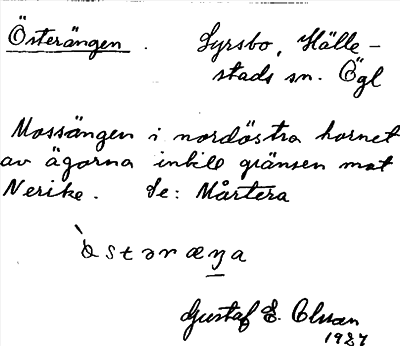 Österängen. Lyrsbo, Hälle-
stads sn. Ögl
Mossängen i nordöstra hornet
av ägorna intill gränsen mot
Nerike. Se: Mårtera
Gustaf E. Olsson
1927